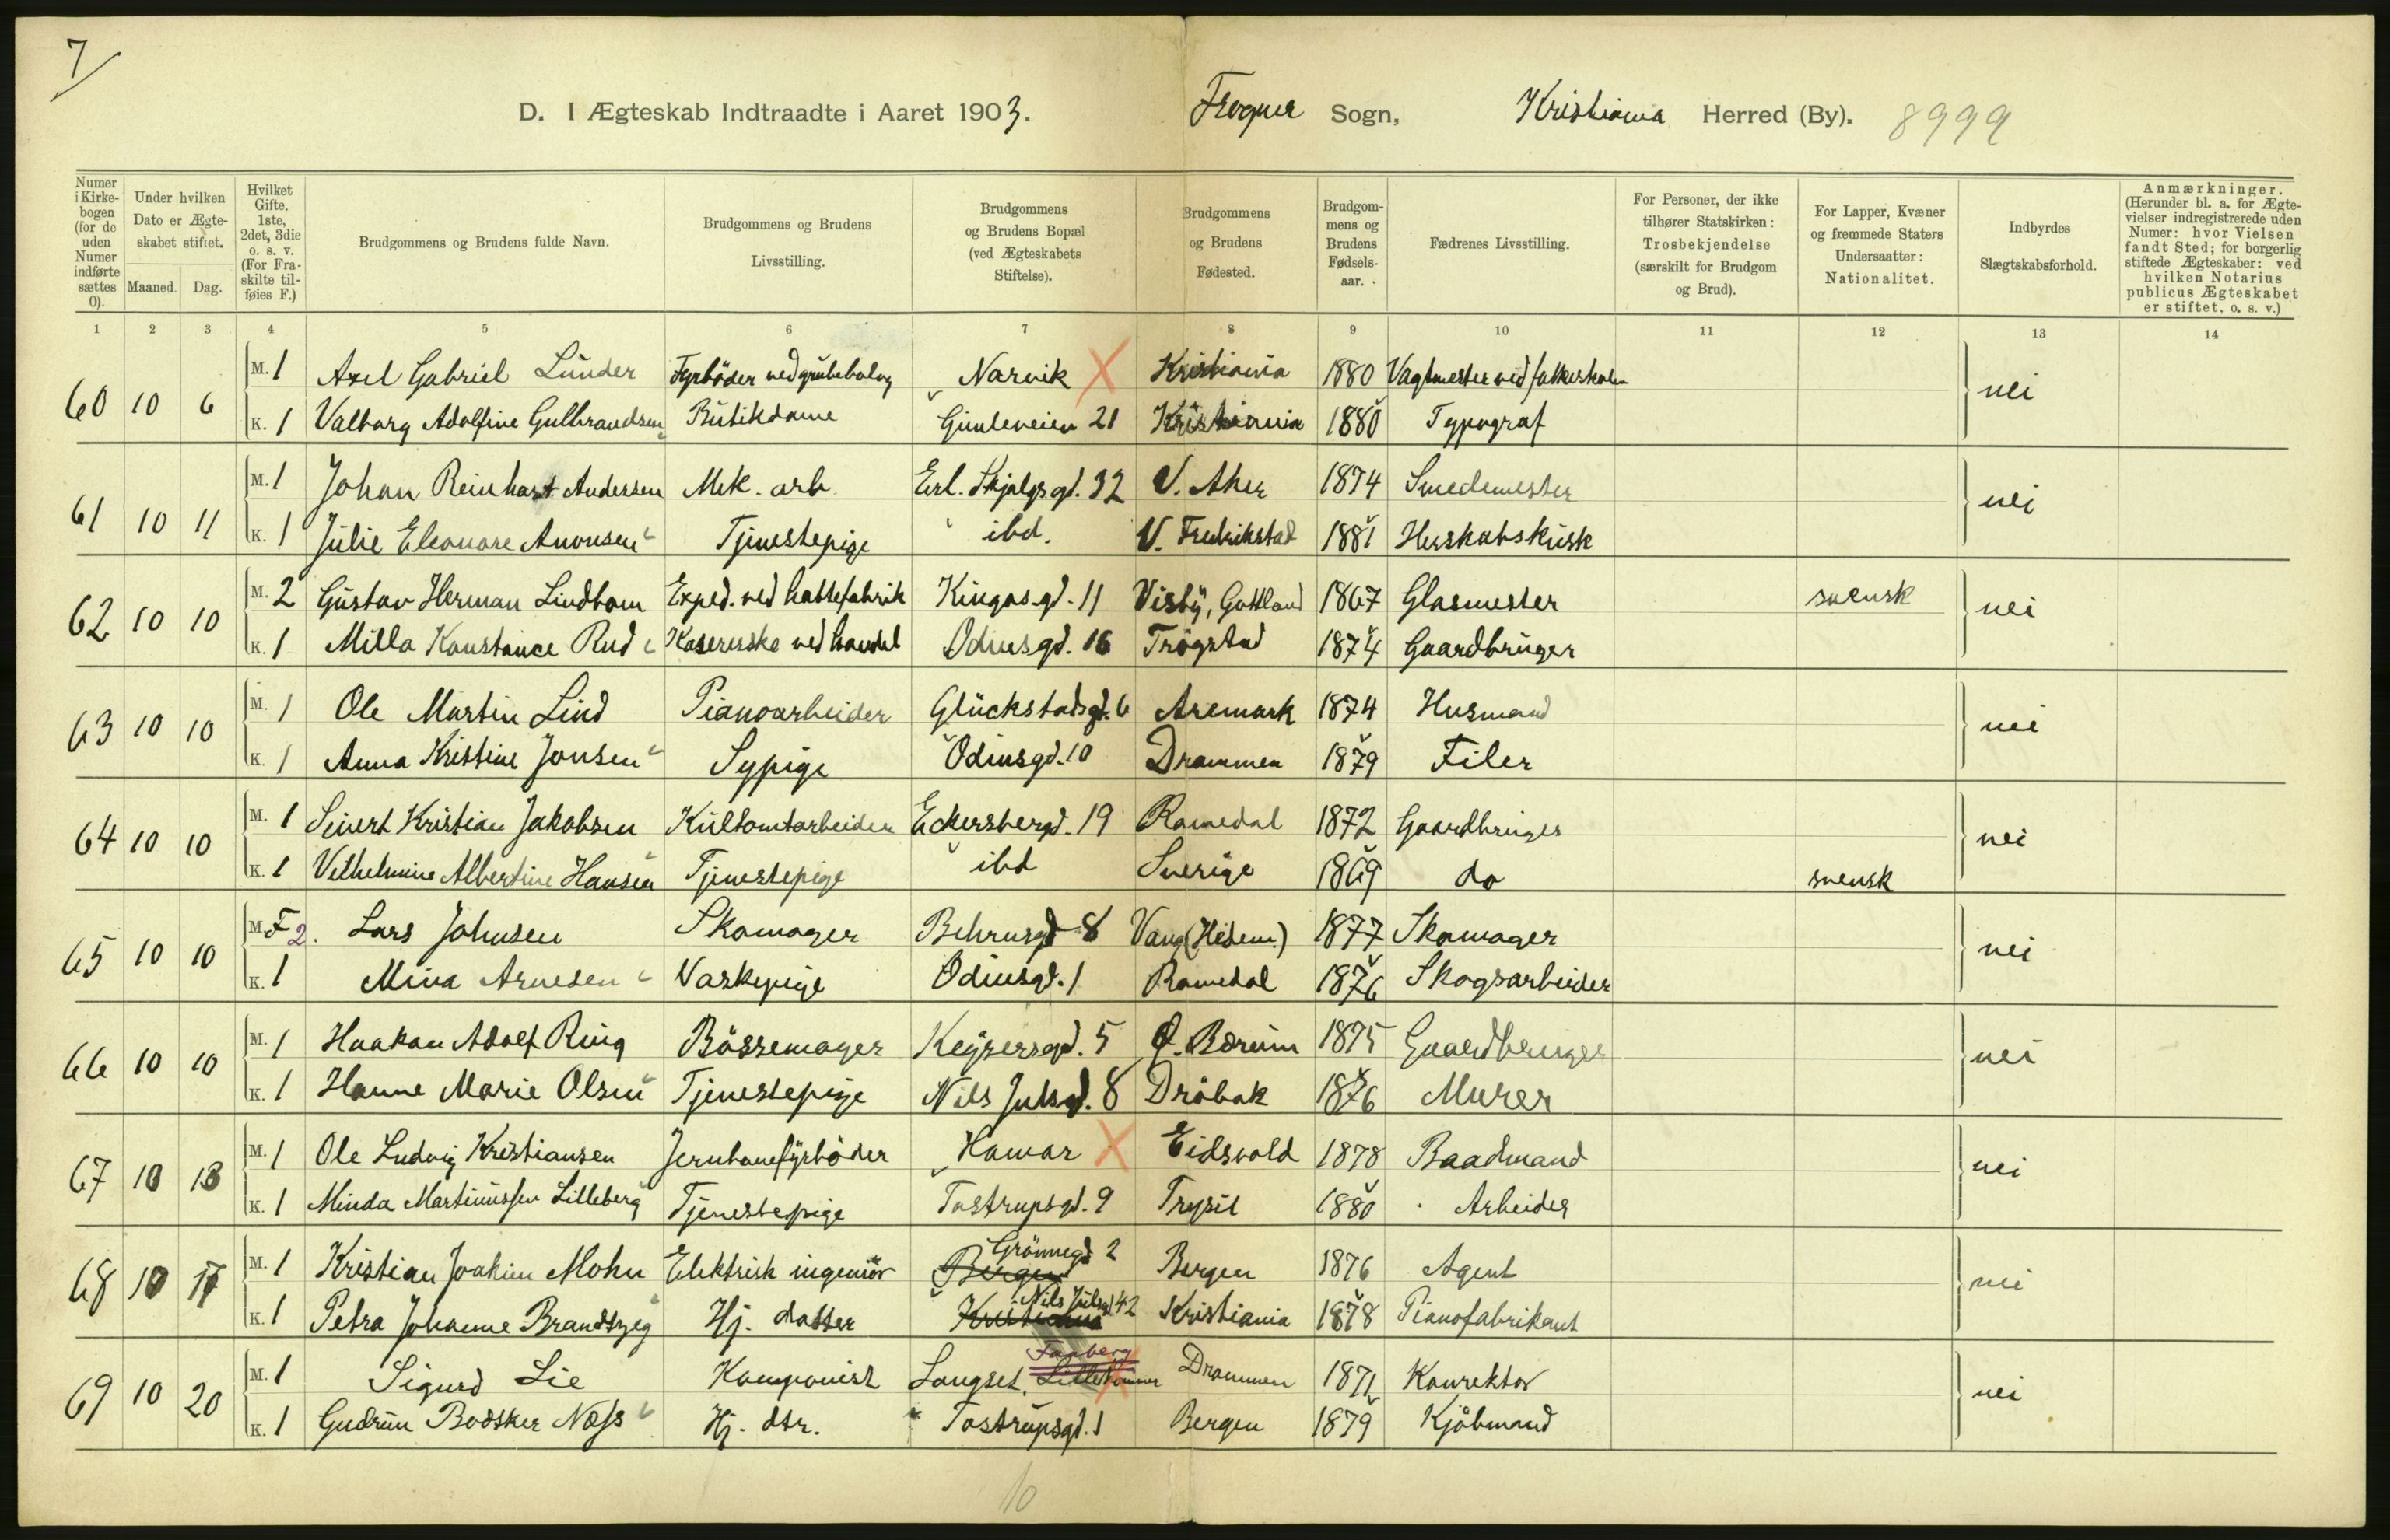 7/
D. I Ægteskab Indtraadte i Aaret 1903. Frogner Sogn, Kristiania Herred (By). 8999
Numer i Kirke-bogen (for de uden Numer indførte sættes 0). Under hvilken Dato er Ægte-skabet stiftet. Maaned. Dag. Hvilket Gifte. 1ste, 2det, 3die o. s. v. (For Fra-skilte til-føies F.) Brudgommens og Brudens fulde Navn. Brudgommens og Brudens Livsstilling. Brudgommens og Brudens Bopæl (ved Ægteskabets Stiftelse). Brudgommens og Brudens Fødested. Brudgom-mens og Brudens Fødsels-aar. Fædrenes Livsstilling. For Personer, der ikke tilhører Statskirken: Trosbekjendelse (særskilt for Brudgom og Brud). For Lapper, Kvæner og fremmede Staters Undersaatter: Nationalitet. Indbyrdes Slægtskabsforhold. Anmærkninger. (Herunder bl. a. for Ægte-vielser indregistrerede uden Numer: hvor Vielsen fandt Sted; for borgerlig stiftede Ægteskaber: ved hvilken Notarius publicus Ægteskabet er stiftet, o. s. v.)
1 2 3 4 5 6 7 8 9 10 11 12 13 14
60 10 6 M. 1 Axel Gabriel Lunder Fyrbøder ved grubebolag Narvik Kristiania 1880 Vagtmester ved folkeskolen nei
K. 1 Valborg Adolfine Gulbrandsen Butikdame Gimleveien 21 Kristiania 1880 Typograf
61 10 11 M. 1 Johan Reinhart Andersen Mek. arb. Erl. Skjalgs gd. 32 V. Aker 1874 Smedemester nei
K. 1 Julie Eleonore Anonsen Tjenestepige ibd. V. Fredrikstad 1881 Herskabskusk
62 10 10 M. 2 Gustav Herman Lindbom Exped. ved hattefabrik Kingos gd. 11 Visby, Gottland 1867 Glasmester svensk nei
K. 1 Milla Konstance Rud Kasererske ved handel Odins gd. 16 Trøgstad 1874 Gaardbruger
63 10 10 M. 1 Ole Martin Lind Pianoarbeider Glückstadsgd. 6 Aremark 1874 Husmand nei
K. 1 Anna Kristine Jonsen Sypige Odinsgd. 10 Drammen 1879 Filer
64 10 10 M. 1 Sivert Kristian Jakobsen Kultomtarbeider Eckersbergd. 19 Romedal 1872 Gaardbruger nei
K. 1 Vilhelmine Albertine Hansen Tjenestepige ibd Sverige 1869 do svensk
65 10 10 M. F 2. Lars Johnsen Skomager Behrnsgd 8 Vang (Hedem.) 1877 Skomager nei
K. 1 Mina Arnesen Vaskepige Odinsgd. 1 Romedal 1876 Skogsarbeider
66 10 10 M. 1 Haakon Adolf Ring Bøssemager Keysersgd. 5 Ø. Bærum 1875 Gaardbruger nei
K. 1 Hanne Marie Olsen Tjenestepige Nils Julsgd. 8 Drøbak 1876 Murer
67 10 13 M. 1 Ole Ludvig Kristiansen Jernbanefyrbøder Hamar Eidsvold 1878 Baadmand nei
K. 1 Minda Martinussen Lilleberg Tjenestepige Tostrupsgd. 9 Trysil 1880 Arbeider
68 10 17 M. 1 Kristian Joakim Mohn Elektrisk ingeniør Bergen Grønnegd 2 Bergen 1876 Agent nei
K. 1 Petra Johanne Brandtzeg Hj. datter Kristiania Nils Julsgd 42 Kristiania 1878 Pianofabrikant
69 10 20 M. 1 Sigurd Lie Komponist Langset, Lillehammer Faaberg Drammen 1871 Konrektor nei
K. 1 Gudrun Bodsker Næss Hj. dtr. Tostrupsgd. 1 Bergen 1879 Kjøbmand
10